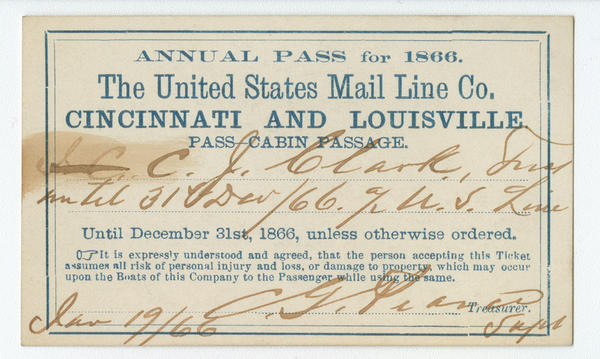 ANNUAL PASS for 1866.
The United States Mail Line Co.
CINCINNATI AND LOUISVILLE.
PASS CABIN PASSAGE.
C. J. Clark,
until 31st Dec/66. U.S. Line
Until December 31st, 1866, unless otherwise ordered.
☞It is expressly understood and agreed, that the person accepting this Ticket
assumes all risk of personal injury and loss, or damage to property, which may occur
upon the Boats of this Company to the Passenger while using the same.
Treasurer.
Jan 19/66 Supt